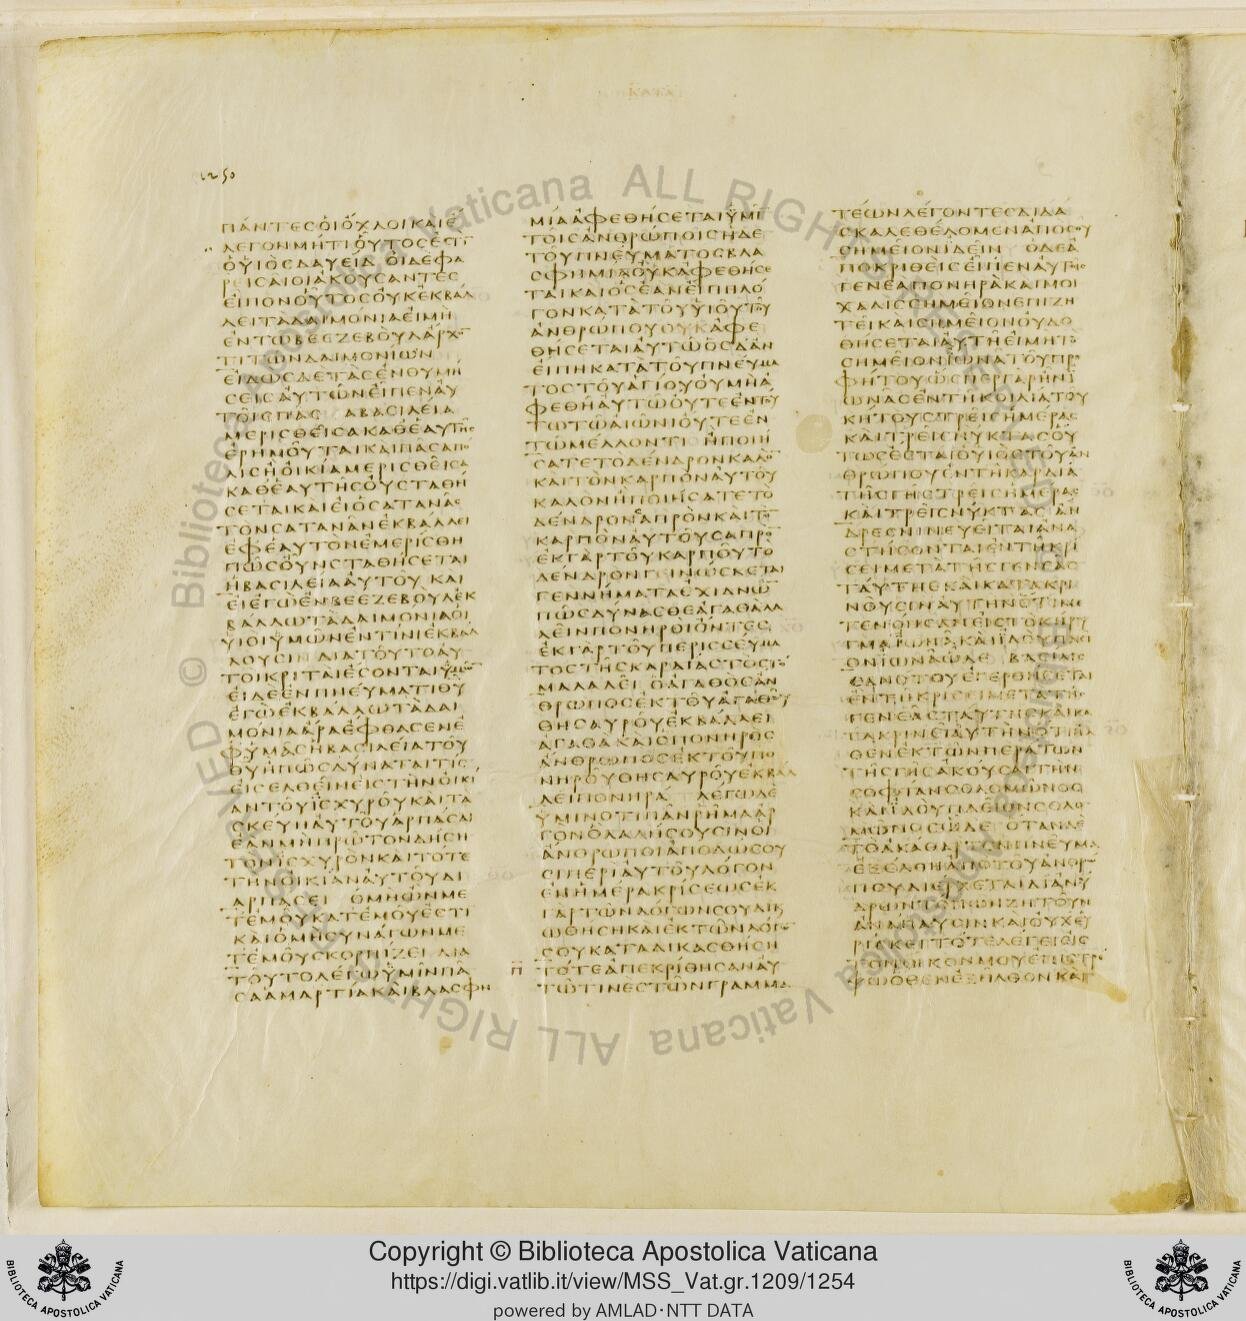 1250
ΠΑΝΤΕΣ ΟΙ ΟΧΛΟΙ ΚΑΙ Ε
ΛΕΓΟΝ ΜΗΤΙ ΟΥΤΟΣ ΕΣΤΙ
Ο ΥΙΟΣ ΔΑΥΕΙΔ ΟΙ ΔΕ ΦΑ
ΡΕΙΣΑΙΟΙ ΑΚΟΥΣΑΝΤΕΣ
ΕΙΠΟΝ ΟΥΤΟΣ ΟΥΚ ΕΚΒΑΛ
ΛΕΙ ΤΑ ΔΑΙΜΟΝΙΑ ΕΙ ΜΗ
ΕΝ ΤΩ ΒΕΕΖΕΒΟΥΛ ΑΡΧΟ
ΤΙ ΤΩΝ ΔΑΙΜΟΝΙΩΝ
ΕΙΔΩΣ ΔΕ ΤΑΣ ΕΝΘΥΜΗ
ΣΕΙΣ ΑΥΤΩΝ ΕΙΠΕΝ ΑΥ
ΤΟΙΣ ΠΑΣΑ ΒΑΣΙΛΕΙΑ
ΜΕΡΙΣΘΕΙΣΑ ΚΑΘ ΕΑΥΤΗΣ
ΕΡΗΜΟΥΤΑΙ ΚΑΙ ΠΑΣΑ ΠΟ
ΛΙΣ Η ΟΙΚΙΑ ΜΕΡΙΣΘΕΙΣΑ
ΚΑΘ ΕΑΥΤΗΣ ΟΥ ΣΤΑΘΗ
ΣΕΤΑΙ ΚΑΙ ΕΙ Ο ΣΑΤΑΝΑΣ
ΤΟΝ ΣΑΤΑΝΑΝ ΕΚΒΑΛΛΕΙ
ΕΦ ΕΑΥΤΟΝ ΕΜΕΡΙΣΘΗ
ΠΩΣ ΟΥΝ ΣΤΑΘΗΣΕΤΑΙ
Η ΒΑΣΙΛΕΙΑ ΑΥΤΟΥ ΚΑΙ
ΕΙ ΕΓΩ ΕΝ ΒΕΕΖΕΒΟΥΛ ΕΚ
ΒΑΛΛΩ ΤΑ ΔΑΙΜΟΝΙΑ ΟΙ
ΥΙΟΙ ΥΜΩΝ ΕΝ ΤΙΝΙ ΕΚΒΑΛ
ΛΟΥΣΙΝ ΔΙΑ ΤΟΥΤΟ ΑΥ
ΤΟΙ ΚΡΙΤΑΙ ΕΣΟΝΤΑΙ ΥΜΩ
ΕΙ ΔΕ ΕΝ ΠΝΕΥΜΑΤΙ ΘΥ
ΕΓΩ ΕΚΒΑΛΛΩ ΤΑ ΔΑΙ
ΜΟΝΙΑ ΑΡΑ ΕΦΘΑΣΕΝ Ε
Φ ΥΜΑΣ Η ΒΑΣΙΛΕΙΑ ΤΟΥ
ΘΥ Η ΠΩΣ ΔΥΝΑΤΑΙ ΤΙΣ
ΕΙΣΕΛΘΕΙΝ ΕΙΣ ΤΗΝ ΟΙΚΙ
ΑΝ ΤΟΥ ΙΣΧΥΡΟΥ ΚΑΙ ΤΑ
ΣΚΕΥΗ ΑΥΤΟΥ ΑΡΠΑΣΑΙ
ΕΑΝ ΜΗ ΠΡΩΤΟΝ ΔΗΣΗ
ΤΟΝ ΙΣΧΥΡΟΝ ΚΑΙ ΤΟΤΕ
ΤΗΝ ΟΙΚΙΑΝ ΑΥΤΟΥ ΔΙ
ΑΡΠΑΣΕΙ Ο ΜΗ ΩΝ ΜΕ
Τ ΕΜΟΥ ΚΑΤ ΕΜΟΥ ΕΣΤΙ
ΚΑΙ Ο ΜΗ ΣΥΝΑΓΩΝ ΜΕ
Τ ΕΜΟΥ ΣΚΟΡΠΙΖΕΙ ΔΙΑ
ΤΟΥΤΟ ΛΕΓΩ ΥΜΙΝ ΠΑ
ΣΑ ΑΜΑΡΤΙΑ ΚΑΙ ΒΛΑΣΦΗ
ΜΙΑ ΑΦΕΘΗΣΕΤΑΙ ΥΜΙ
ΤΟΙΣ ΑΝΘΡΩΠΟΙΣ Η ΔΕ
ΤΟΥ ΠΝΕΥΜΑΤΟΣ ΒΛΑ
ΣΦΗΜΙΑ ΟΥΚ ΑΦΕΘΗΣΕ
ΤΑΙ ΚΑΙ ΟΣ ΕΑΝ ΕΙΠΗ ΛΟ
ΓΟΝ ΚΑΤΑ ΤΟΥ ΥΙΟΥ ΤΟΥ
ΑΝΘΡΩΠΟΥ ΟΥΚ ΑΦΕ
ΘΗΣΕΤΑΙ ΑΥΤΩ ΟΣ Δ ΑΝ
ΕΙΠΗ ΚΑΤΑ ΤΟΥ ΠΝΕΥΜΑ
ΤΟΣ ΤΟΥ ΑΓΙΟΥ ΟΥ ΜΗ Α
ΦΕΘΗ ΑΥΤΩ ΟΥΤΕ ΕΝ ΤΟΥ
ΤΩ ΤΩ ΑΙΩΝΙ ΟΥΤΕ ΕΝ
ΤΩ ΜΕΛΛΟΝΤΙ Η ΠΟΙΗ
ΣΑΤΕ ΤΟ ΔΕΝΔΡΟΝ ΚΑΛΟ
ΚΑΙ ΤΟΝ ΚΑΡΠΟΝ ΑΥΤΟΥ
ΚΑΛΟΝ Η ΠΟΙΗΣΑΤΕ ΤΟ
ΔΕΝΔΡΟΝ ΣΑΠΡΟΝ ΚΑΙ ΤΟ
ΚΑΡΠΟΝ ΑΥΤΟΥ ΣΑΠΡΟ
ΕΚ ΓΑΡ ΤΟΥ ΚΑΡΠΟΥ ΤΟ
ΔΕΝΔΡΟΝ ΓΙΝΩΣΚΕΤΑΙ
ΓΕΝΝΗΜΑΤΑ ΕΧΙΔΝΩ
ΠΩΣ ΔΥΝΑΣΘΕ ΑΓΑΘΑ ΛΑ
ΛΕΙΝ ΠΟΝΗΡΟΙ ΟΝΤΕΣ
ΕΚ ΓΑΡ ΤΟΥ ΠΕΡΙΣΣΕΥΜΑ
ΤΟΣ ΤΗΣ ΚΑΡΔΙΑΣ ΤΟ ΣΤΟ
ΜΑ ΛΑΛΕΙ Ο ΑΓΑΘΟΣ ΑΝ
ΘΡΩΠΟΣ ΕΚ ΤΟΥ ΑΓΑΘΟΥ
ΘΗΣΑΥΡΟΥ ΕΚΒΑΛΛΕΙ
ΑΓΑΘΑ ΚΑΙ Ο ΠΟΝΗΡΟΣ
ΑΝΘΡΩΠΟΣ ΕΚ ΤΟΥ ΠΟ
ΝΗΡΟΥ ΘΗΣΑΥΡΟΥ ΕΚΒΑΛ
ΛΕΙ ΠΟΝΗΡΑ ΛΕΓΩ ΔΕ
ΥΜΙΝ ΟΤΙ ΠΑΝ ΡΗΜΑ ΑΡ
ΓΟΝ Ο ΛΑΛΗΣΟΥΣΙΝ ΟΙ
ΑΝΘΡΩΠΟΙ ΑΠΟΔΩΣΟΥ
ΣΙ ΠΕΡΙ ΑΥΤΟΥ ΛΟΓΟΝ
ΕΝ ΗΜΕΡΑ ΚΡΙΣΕΩΣ ΕΚ
ΓΑΡ ΤΩΝ ΛΟΓΩΝ ΣΟΥ ΔΙΚΑΙ
ΩΘΗΣΗ ΚΑΙ ΕΚ ΤΩΝ ΛΟΓΩ
ΣΟΥ ΚΑΤΑΔΙΚΑΣΘΗΣΗ
ΤΟΤΕ ΑΠΕΚΡΙΘΗΣΑΝ ΑΥ
ΤΩ ΤΙΝΕΣ ΤΩΝ ΓΡΑΜΜΑ
ΤΕΩΝ ΛΕΓΟΝΤΕΣ ΔΙΔΑ
ΣΚΑΛΕ ΘΕΛΟΜΕΝ ΑΠΟ ΣΟΥ
ΣΗΜΕΙΟΝ ΙΔΕΙΝ Ο ΔΕ Α
ΠΟΚΡΙΘΕΙΣ ΕΙΠΕΝ ΑΥΤΟΙΣ
ΓΕΝΕΑ ΠΟΝΗΡΑ ΚΑΙ ΜΟΙ
ΧΑΛΙΣ ΣΗΜΕΙΟΝ ΕΠΙΖΗ
ΤΕΙ ΚΑΙ ΣΗΜΕΙΟΝ ΟΥ ΔΟ
ΘΗΣΕΤΑΙ ΑΥΤΗ ΕΙ ΜΗ ΤΟ
ΣΗΜΕΙΟΝ ΙΩΝΑ ΤΟΥ ΠΡΟ
ΦΗΤΟΥ ΩΣΠΕΡ ΓΑΡ ΗΝ Ι
ΩΝΑΣ ΕΝ ΤΗ ΚΟΙΛΙΑ ΤΟΥ
ΚΗΤΟΥΣ ΤΡΕΙΣ ΗΜΕΡΑΣ
ΚΑΙ ΤΡΕΙΣ ΝΥΚΤΑΣ ΟΥ
ΤΩΣ ΕΣΤΑΙ Ο ΥΙΟΣ ΤΟΥ ΑΝ
ΘΡΩΠΟΥ ΕΝ ΤΗ ΚΑΡΔΙΑ
ΤΗΣ ΓΗΣ ΤΡΕΙΣ ΗΜΕΡΑΣ
ΚΑΙ ΤΡΕΙΣ ΝΥΚΤΑΣ ΑΝ
ΔΡΕΣ ΝΙΝΕΥΕΙΤΑΙ ΑΝΑ
ΣΤΗΣΟΝΤΑΙ ΕΝ ΤΗ ΚΡΙ
ΣΕΙ ΜΕΤΑ ΤΗΣ ΓΕΝΕΑΣ
ΤΑΥΤΗΣ ΚΑΙ ΚΑΤΑΚΡΙ
ΝΟΥΣΙΝ ΑΥΤΗΝ ΟΤΙ ΜΕ
ΤΕΝΟΗΣΑΝ ΕΙΣ ΤΟ ΚΗΡΥ
ΓΜΑ ΙΩΝΑ ΚΑΙ ΙΔΟΥ ΠΛΕΙ
ΟΝ ΙΩΝΑ ΩΔΕ ΒΑΣΙΛΙΣ
ΣΑ ΝΟΤΟΥ ΕΓΕΡΘΗΣΕΤΑΙ
ΕΝ ΤΗ ΚΡΙΣΕΙ ΜΕΤΑ ΤΗΣ
ΓΕΝΕΑΣ ΤΑΥΤΗΣ ΚΑΙ ΚΑ
ΤΑΚΡΙΝΕΙ ΑΥΤΗΝ ΟΤΙ ΗΛ
ΘΕΝ ΕΚ ΤΩΝ ΠΕΡΑΤΩΝ
ΤΗΣ ΓΗΣ ΑΚΟΥΣΑΙ ΤΗΝ
ΣΟΦΙΑΝ ΣΟΛΟΜΩΝΟΣ
ΚΑΙ ΙΔΟΥ ΠΛΕΙΟΝ ΣΟΛΟ
ΜΩΝΟΣ ΩΔΕ ΟΤΑΝ ΔΕ
ΤΟ ΑΚΑΘΑΡΤΟΝ ΠΝΕΥΜΑ
ΕΞΕΛΘΗ ΑΠΟ ΤΟΥ ΑΝΘΡΩ
ΠΟΥ ΔΙΕΡΧΕΤΑΙ ΔΙ ΑΝΥ
ΔΡΩΝ ΤΟΠΩΝ ΖΗΤΟΥΝ
ΑΝΑΠΑΥΣΙΝ ΚΑΙ ΟΥΧ ΕΥ
ΡΙΣΚΕΙ ΤΟΤΕ ΛΕΓΕΙ ΕΙΣ
ΤΟΝ ΟΙΚΟΝ ΜΟΥ ΕΠΙΣΤΡΕ
ΨΩ ΟΘΕΝ ΕΞΗΛΘΟΝ ΚΑΙ
© Biblioteca Apostolica Vaticana ALL RIGHTS RESERVED
Copyright © Biblioteca Apostolica Vaticana
https://digi.vatlib.it/view/MSS_Vat.gr.1209/1254
powered by AMLAD·NTT DATA
BIBLIOTECA APOSTOLICA VATICANA
BIBLIOTECA APOSTOLICA VATICANA